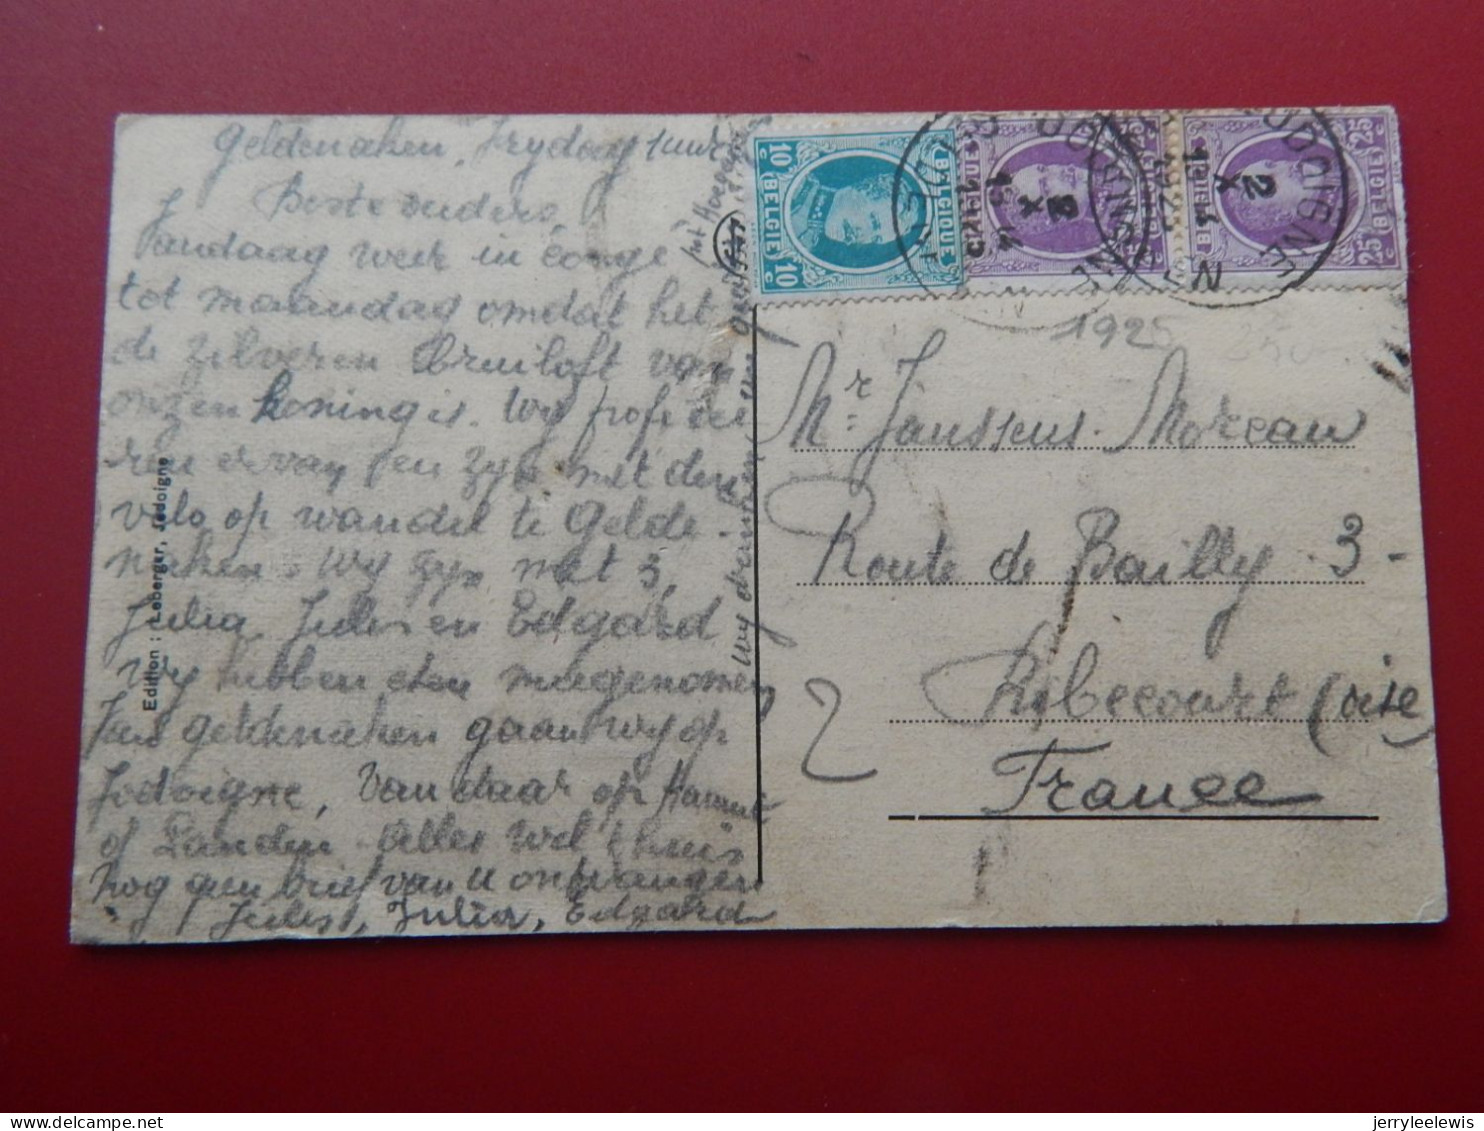 Geldenaken, Frydag 1 uur
Beste ouders,
Vandaag weer in congé
tot maandag omdat het
de zilveren bruiloft van
onzen koning is. Wy profitee
ren ervan en zyn met den
velo op wandel te Gelde-
naken. Wy zyn met 3,
Julia, Jules en Edgard
Wy hebben eten meegenomen
Van geldenaken gaan wy op
Jodoigne, van daar op Hannut
of Landen. Alles wel thuis
Nog geen brief van u ontvangen
Jules, Julia, Edgard
Wy drinken
Edition : Leberger, Jodoigne
10 c BELGIE BELGIQUE 10 c
25 c BELGIE 25 c
JODOIGNE
2 X
13-14
1925
1925
Mr. Janssens-Moreau
Route de Bailly 3-
Ribécourt (oise
France
2
jerryleelewis